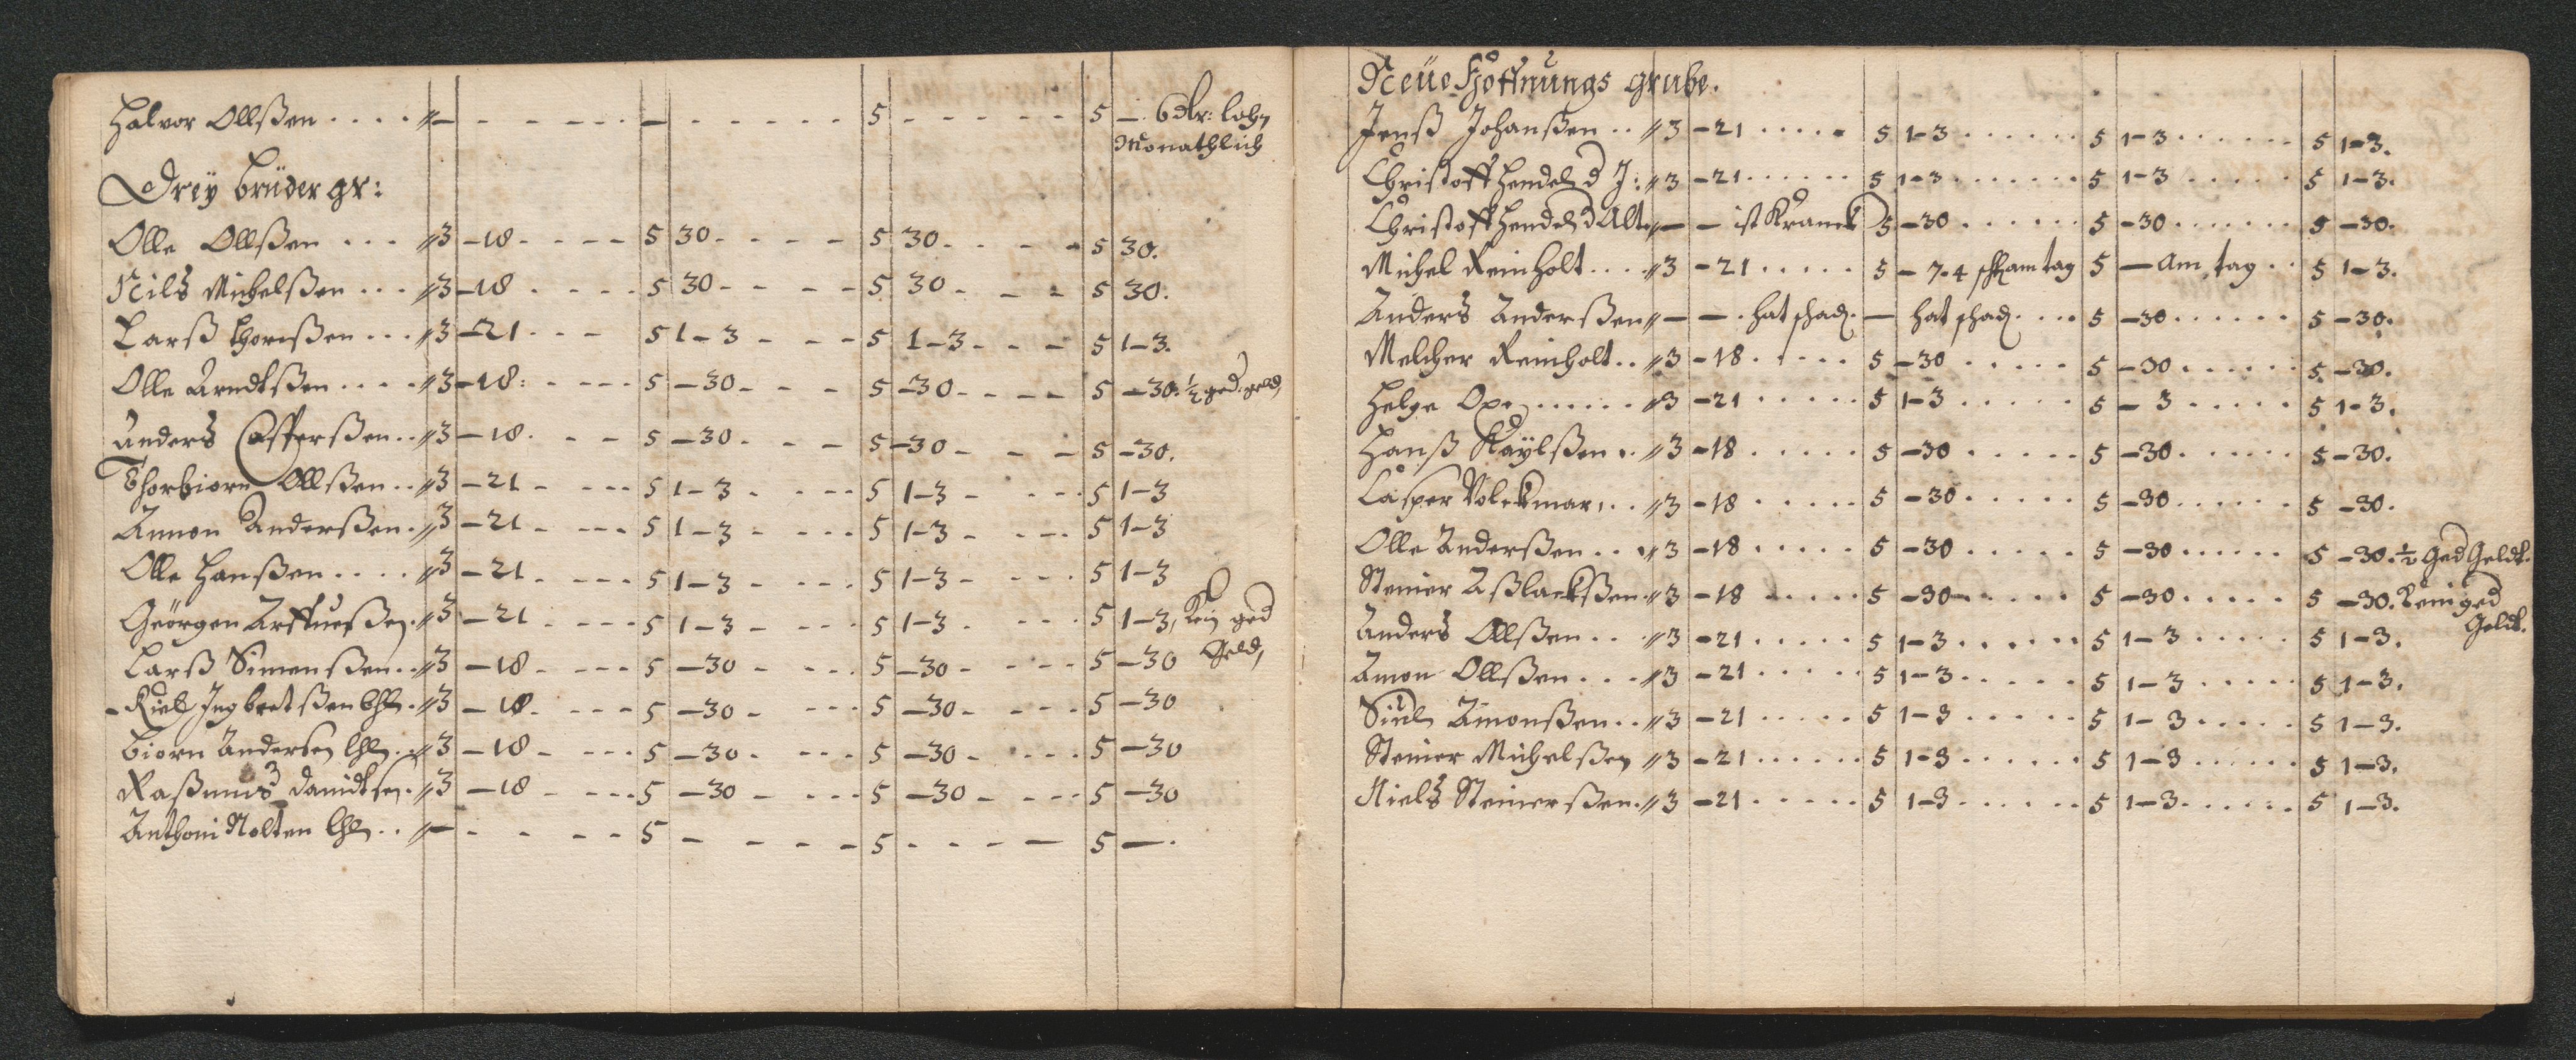 Halvor Ollßen .... // — - - - - - — - - - - - 5 - - - - - 5 —. 6 dlr: lohn
Monathlich
Dreÿ brüder gr:
Olle Ollßen ... // 3 – 18 - - - - 5 30 - - - - 5 30 - - - - 5 30.
Nils Michelßen ... // 3 – 18 - - - - 5 30 - - - - 5 30 - - - 5 30.
Larß Thorißen ... // 3 – 21 - - - 5 1–3 - - - 5 1–3 - - - 5 1–3.
Olle Arndtßen .... // 3 – 18: - - - - 5 –30 - - - 5 –30 - - - - 5 –30. ½ ged: geld
Anders Casperßen .. // 3 – 18. - - - 5 –30 - - - 5 –30 - - - 5 –30.
Thorbiorn Ollßen .. // 3 – 21 - - - - 5 1–3 - - - - 5 1–3 - - - - 5 1–3
Amon Anderßen . // 3 – 21 - - - - 5 1–3 - - - - 5 1–3 - - - - 5 1–3
Olle Hanßen .... // 3 – 21 - - - - 5 1–3 - - - - 5 1–3 - - - - 5 1–3
Geörgen . // 3 – 21 - - - - 5 1–3 - - - - 5 1–3 - - - - 5 1–3, Kein ged
Geld,
Larß Simenßen .. // 3 – 18 - - - - 5 –30 - - - - 5 –30 - - - - 5 –30
Kield Ingbretßen . // 3 – 18 - - - - 5 –30 - - - - 5 –30 - - - - 5 –30
Biorn Andersen . // 3 – 18 - - - - 5 –30 - - - - 5 –30 - - - - 5 –30
Raßmus Davidtsen . // 3 – 18 - - - - 5 –30 - - - - 5 –30 - - - - 5 –30
Anthoni Nolten .. // — - - - - 5 - - - - - 5 - - - - — 5 —.
Neüe Hoffnungs grube.
Jenß Johanßen .. // 3 – 21 ..... 5 1–3 ...... 5 1–3 ...... 5 1–3.
Christoff Hendel d J: // 3 – 21 ...... 5 1–3 ....... 5 1–3 ..... 5 1–3.
Christoff Hendel d Alt. // — — ist Kranck 5 –30 ...... 5 –30 ....... 5 –30.
Michel Reinholt .... // 3 – 21 ..... 5 – 7. 4 am tag 5 — Am tag .. 5 1–3.
Anders Anderßen // — —. hat schad. — hat schad .... 5 –30 ...... 5 –30.
Melcher Reinholt .. // 3 – 18 ..... 5 –30 ..... 5 –30 ...... 5 –30.
Helge ...... // 3 – 21 ..... 5 1–3 ..... 5 – 3 ..... 5 1–3.
Hanß Kaÿlßen .. // 3 – 18 ..... 5 –30 ..... 5 –30 ...... 5 –30.
Casper Volckmar .. // 3 – 18 ..... 5 –30 ..... 5 –30 ...... 5 –30.
Olle Anderßen ... // 3 – 18 ..... 5 –30 ..... 5 –30 ...... 5 –30. ½ Ged Geldt.
Steiner Aßlackßen . // 3 – 18 ..... 5 –30 ..... 5 –30 ..... 5 –30. Kein ged
Geldt.
Anders Ollßen ... // 3 – 21 ..... 5 1–3 ...... 5 1–3 ..... 5 1–3.
Amon Ollßen ... // 3 – 21 ..... 5 1–3 ..... 5 1–3 ..... 5 1–3.
Amonßen .. // 3 – 21 ..... 5 1–3 ..... 5 1–3 ..... 5 1–3.
Steiner Michelßen // 3 – 21 ...... 5 1–3 ...... 5 1–3 ...... 5 1–3.
Niels Steinerßen . // 3 – 21 ..... 5 1–3 ...... 5 1–3 ...... 5 1–3.